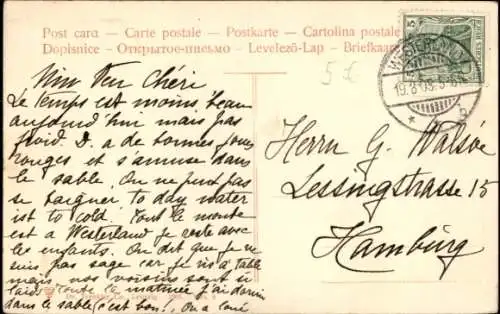 Post card — Carte postale — Postkarte — Cartolina postale
Dopisnice — Открытое письмо — Levelező-Lap — Briefkaart
5
WESTERLAND
19.8.03.
5€
Mon Chéri
Le temps est moins beau
aujourd'hui mais pas
froid. D. a de bonnes joues
rouges et s'amuse dans
le sable. On ne peut pas
se baigner, to day water
ist to cold. Tout le monde
est a Westerland je reste avec
les enfants. On dit que je ne
suis pas sage car je ris a table
mais nos voisins sont si
laids. Toute la matinée j'ai dormi
dans le sable (c'est bon). On a
Herrn G. Walsöe
Lessingstrasse 15
Hamburg